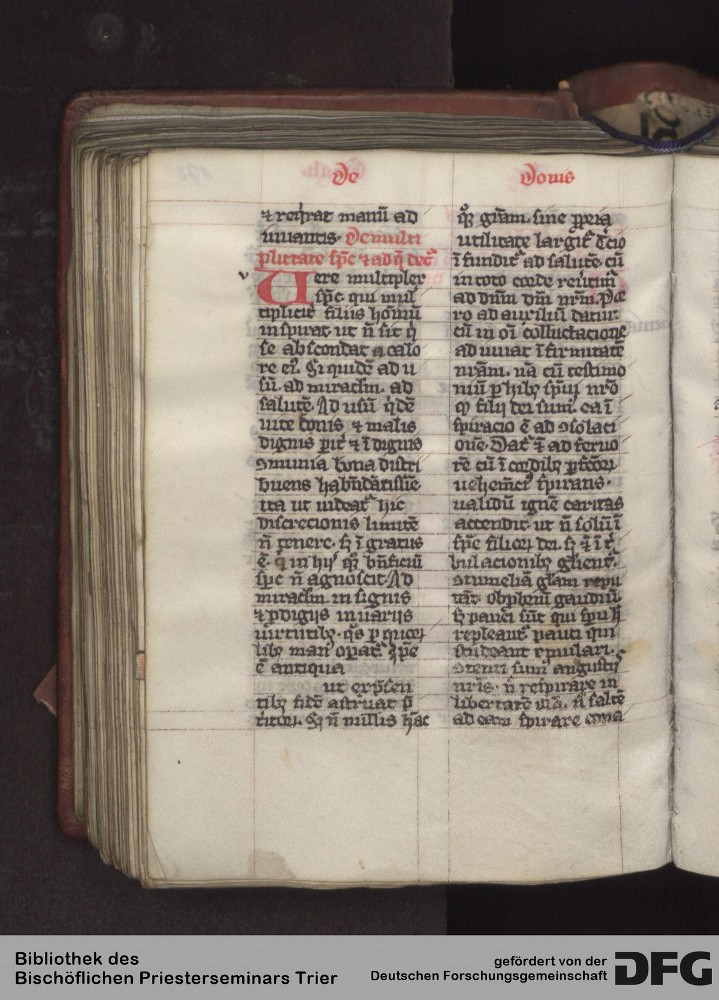 De
Donis
⁊ reꝑat manū ad
uiuantis. De multi
plicitate spc̄ ⁊ ad q̄
Uere multipler
spc̄ qui mul
tiplicit̄ filiis hoīnū
inspirat ut n̄ sit q̄
se abscondat a calo
re eꝰ. Si quidē ad u
sū. ad miraclm. ad
salutē. Ad usū q̄dē
uite bonis ⁊ malis
dignis ⁊ īdignis
ꝯmunia bona distri
buens habūdātissīe
ita ut uideat̄ hic
discrecionis limitē
n̄ tenere. sꝫ īgratus
ē. q̇ in hijs bn̄ficiū
spc̄ n̄ agnoscit. Ad
miraclm. in signis
⁊ ꝓdigijs in uarijs
uirtutibꝫ. q̄s ꝑ
libꝫ manꝰ operat̄
ē antiqua
ut
tibꝫ fidē astruat p̄
Sꝫ n̄ nullis hāc
gr̄am. sine ꝓpria
utilitate largit̄ T̄cio
īfundit̄ ad salutē. cū
in toto corde
ad dn̄m dm̄ nr̄m. Por
ro ad auxiliū datur.
cū in oī colluctacione
ad iuuat īfirmitatē
nr̄am. nā cū testimo
niū ꝑhibꝫ spūi nr̄o
ꝙ filij dei sumꝰ. ea ī
spiracio ē ad ꝯsolaci
onē. Dat̄ ⁊ ad feruo
rē cū ī cordibꝫ
spirans.
ualidū ignē caritas
accendit. ut n̄ solū ī
spe filiorꝫ dei. sꝫ ⁊ ī t̄
bulacionibꝫ
ꝯtumeliā gl̄am repu
tās. obꝓbriū gaudiū.
Sꝫ pauci sūt qui spū h
repleant̄ pauci qui
studeant emulari.
ꝯtenti sumꝰ angustijs
nr̄is. n̄ respirare in
libertatē n̄ saltē
ad eam spirare cona
Bibliothek des
Bischöflichen Priesterseminars Trier
gefördert von der
Deutschen Forschungsgemeinschaft
DFG